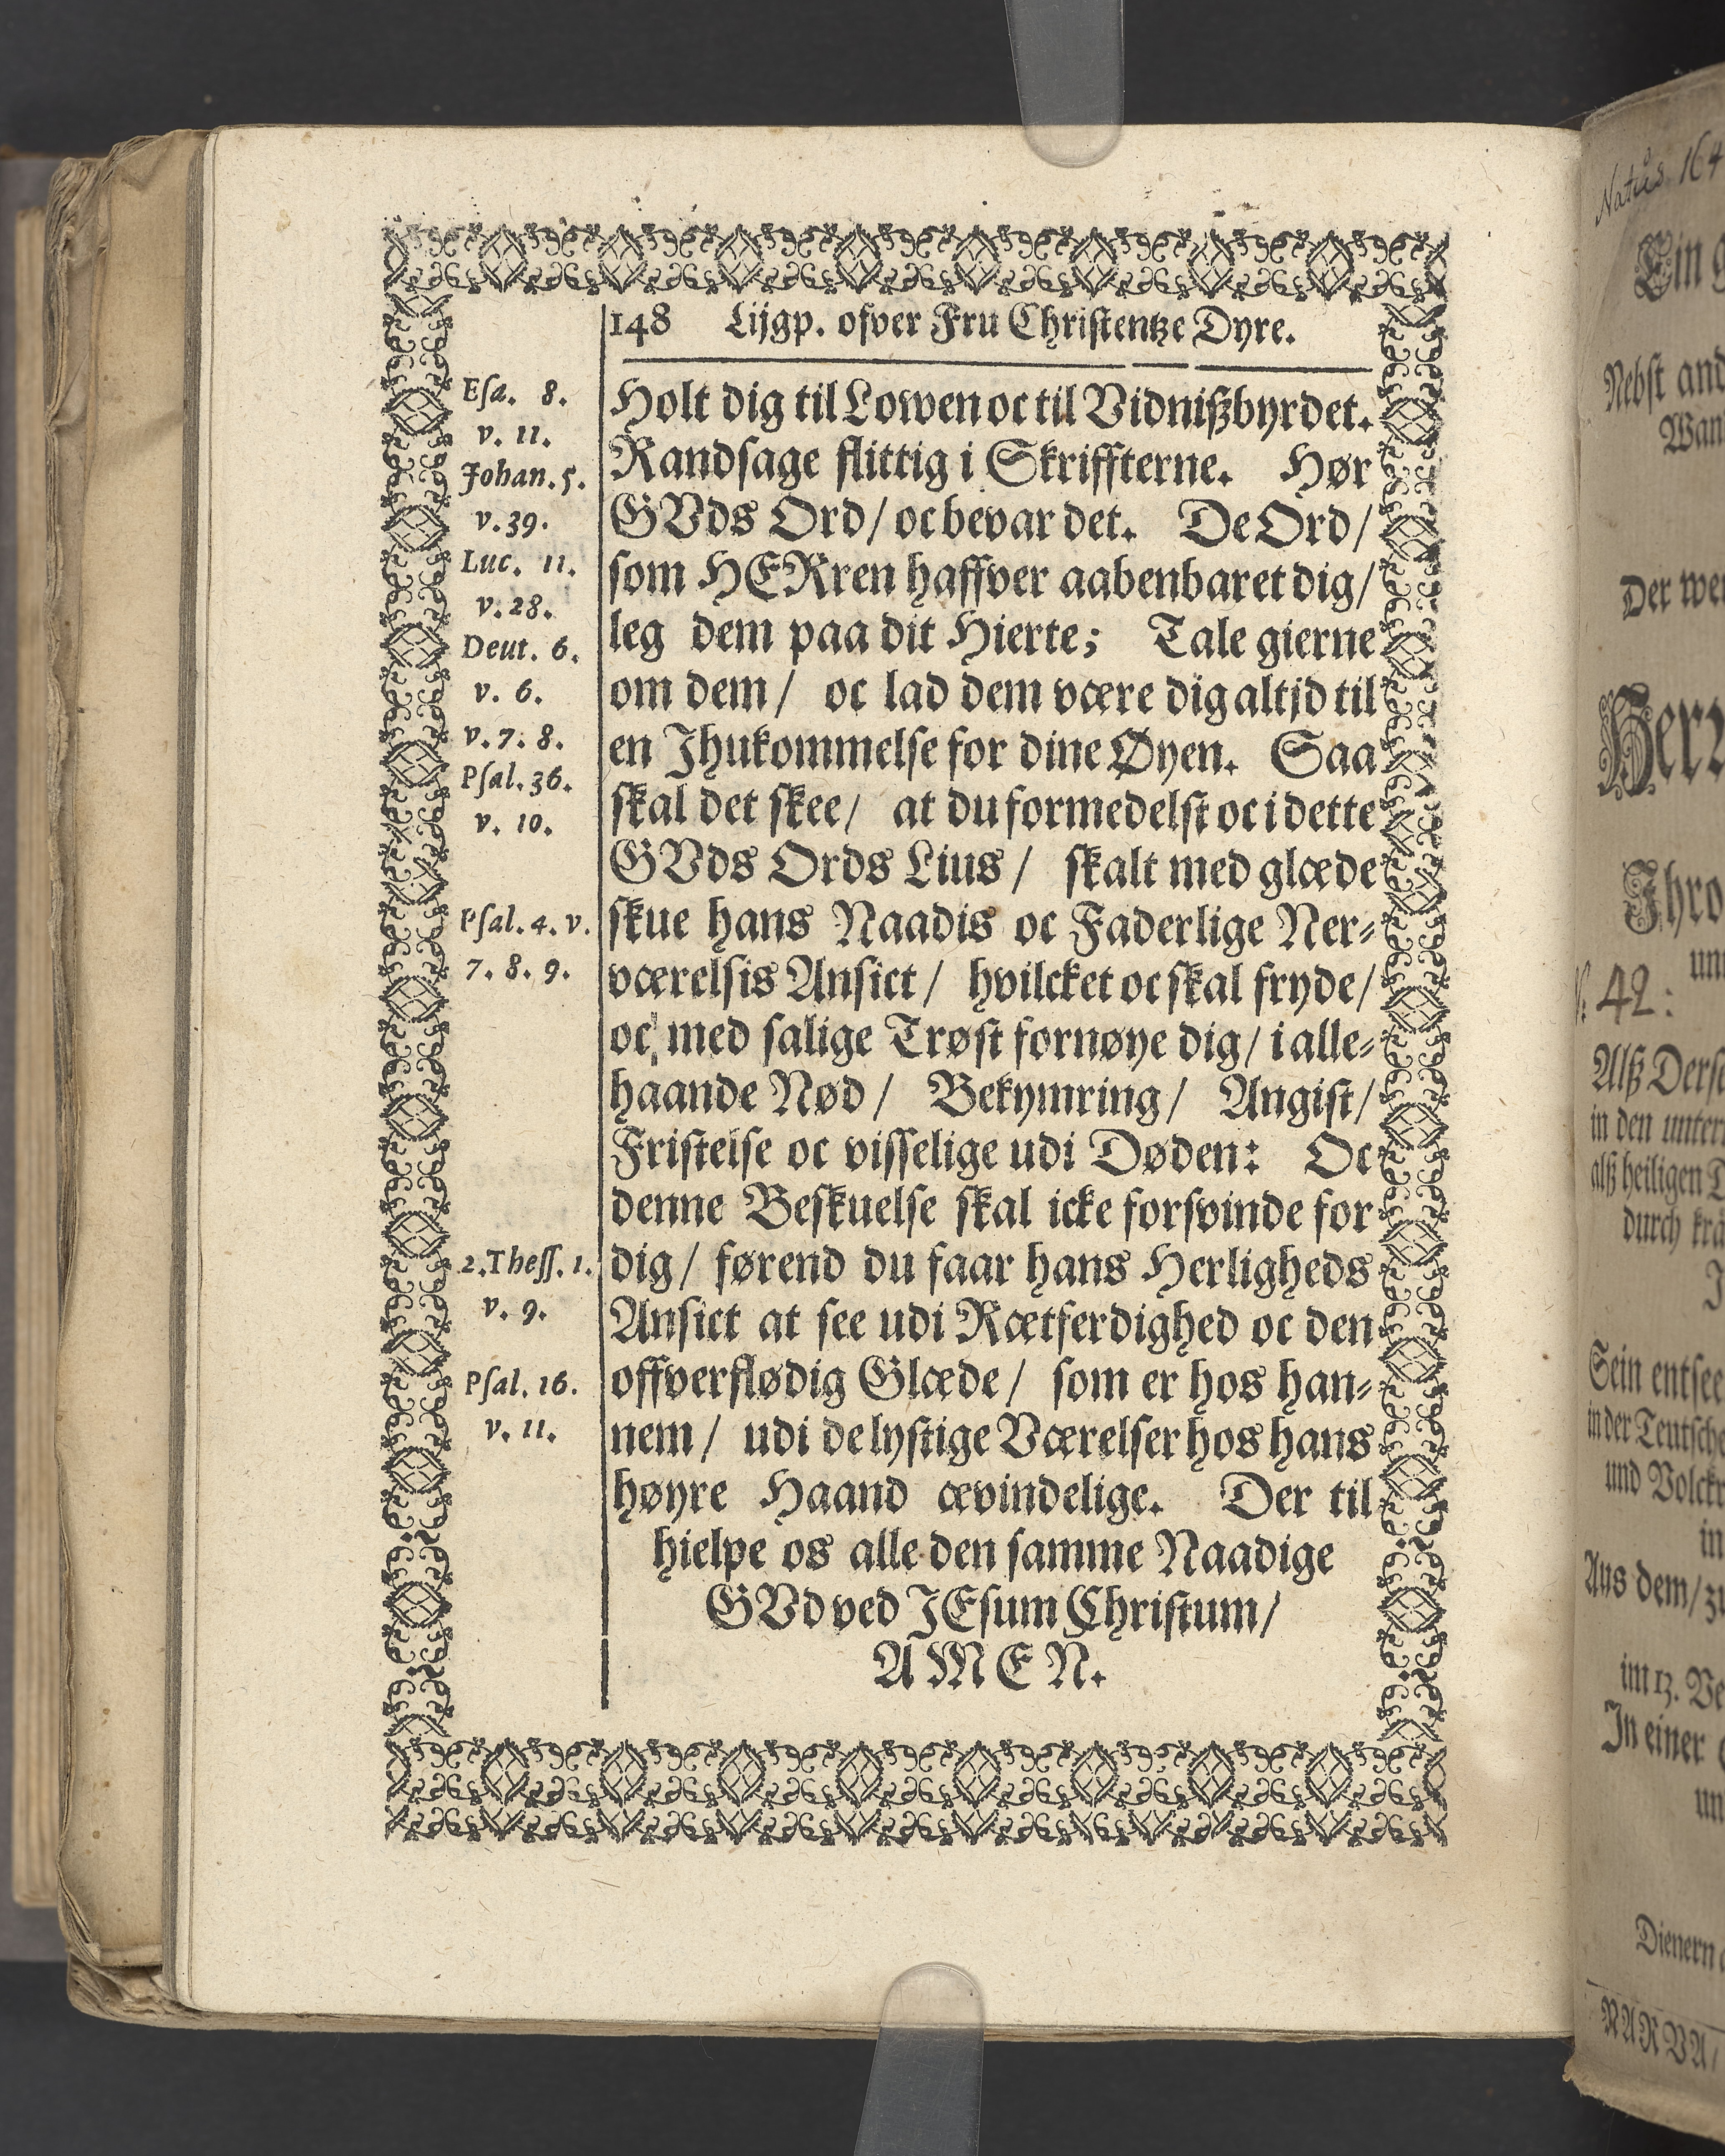 148 Lijgp. ofver Fru Christentze Dyre.
Esa. 8.
v. 11.
Johan. 5.
v. 39.
Luc. 11.
v. 28.
Deut. 6.
v. 6.
v. 7. 8.
Psal. 36.
v. 10.
Psal. 4. v.
7. 8. 9.
2. Thess. 1.
v. 9.
Psal. 16.
v. 11.
Holt dig til Lowen oc til Vidnißbyrdet.
Randsage flittig i Skriffterne. Hør
GVds Ord/ oc bevar det. De Ord/
som HERren haffver aabenbaret dig/
leg dem paa dit Hierte; Tale gierne
om dem/ oc lad dem være dig altjd til
en Jhukommelse for dine Øyen. Saa
skal det skee/ at du formedelst oc i dette
GVds Ords Lius/ skalt med glæde
skue hans Naadis oc Faderlige Ner-
værelsis Ansict/ hvilcket oc skal fryde/
oc med salige Trøst fornøye dig/ i alle-
haande Nød/ Bekymring/ Angist/
Fristelse oc visselige udi Døden: Oc
denne Beskuelse skal icke forsvinde for
dig/ førend du faar hans Herligheds
Ansict at see udi Rætferdighed oc den
offverflødig Glæde/ som er hos han-
nem/ udi de lystige Værelser hos hans
høyre Haand ævindelige. Der til
hielpe os alle den samme Naadige
GVd ved JEsum Christum/
AMEN.
Natus 164
Ein
Nebst
Der
Ihro
42.
Alß
in den
alß heiligen
durch
Sein
in der
und
in
Aus dem/
im 13.
In einer
Dienern
NARVA/